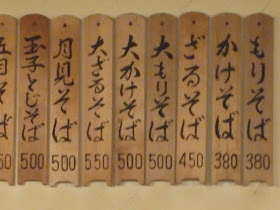 もりそば
380
かけそば
380
ざるそば
450
大もりそば
500
大かけそば
500
大ざるそば
550
月見そば
500
玉子とじそば
500
五目そば
50